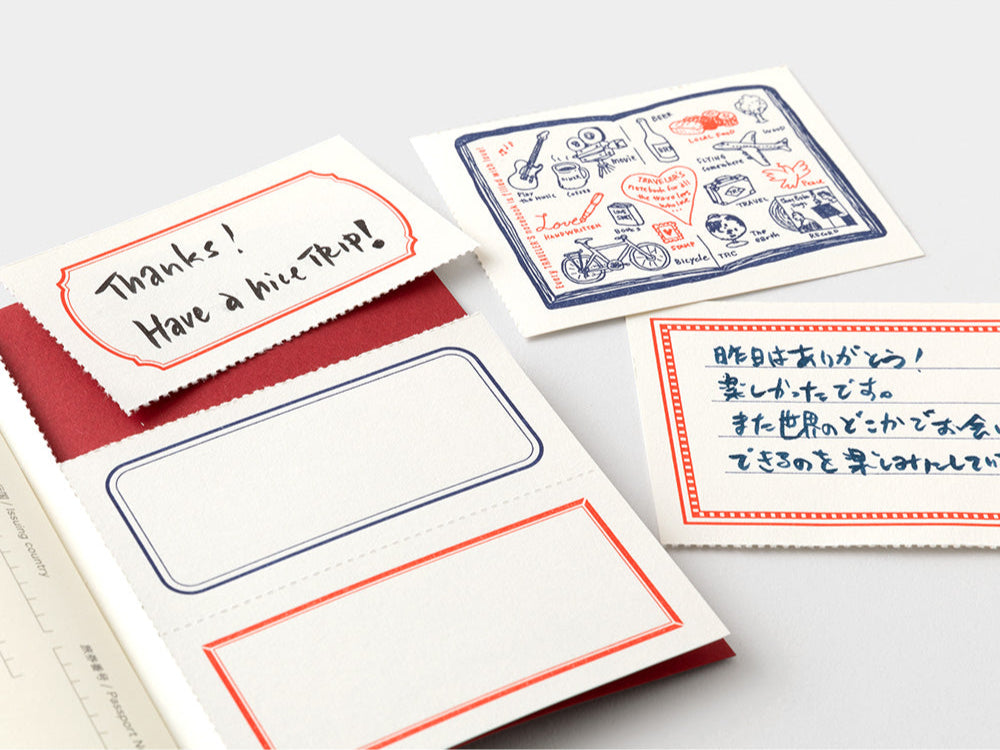 Thanks!
Have a nice TRIP!
BEER
LOCAL FOOD
WOOD
Movie
FLYING
Somewhere
Play
the Music
COFFEE
DINER
TRAVELER'S
notebook for all
Peace
TRAVEL
Love
HANDWRITTEN
BOOKS
STAMP
The
earth
RECORD
Bicycle
TRC
Every TRAVELER'S notebook is filled with love!
昨日はありがとう!
楽しかったです。
また世界のどこかでお会い
できるのを楽しみにしてい
/ Issuing country
旅券番号 / Passport N